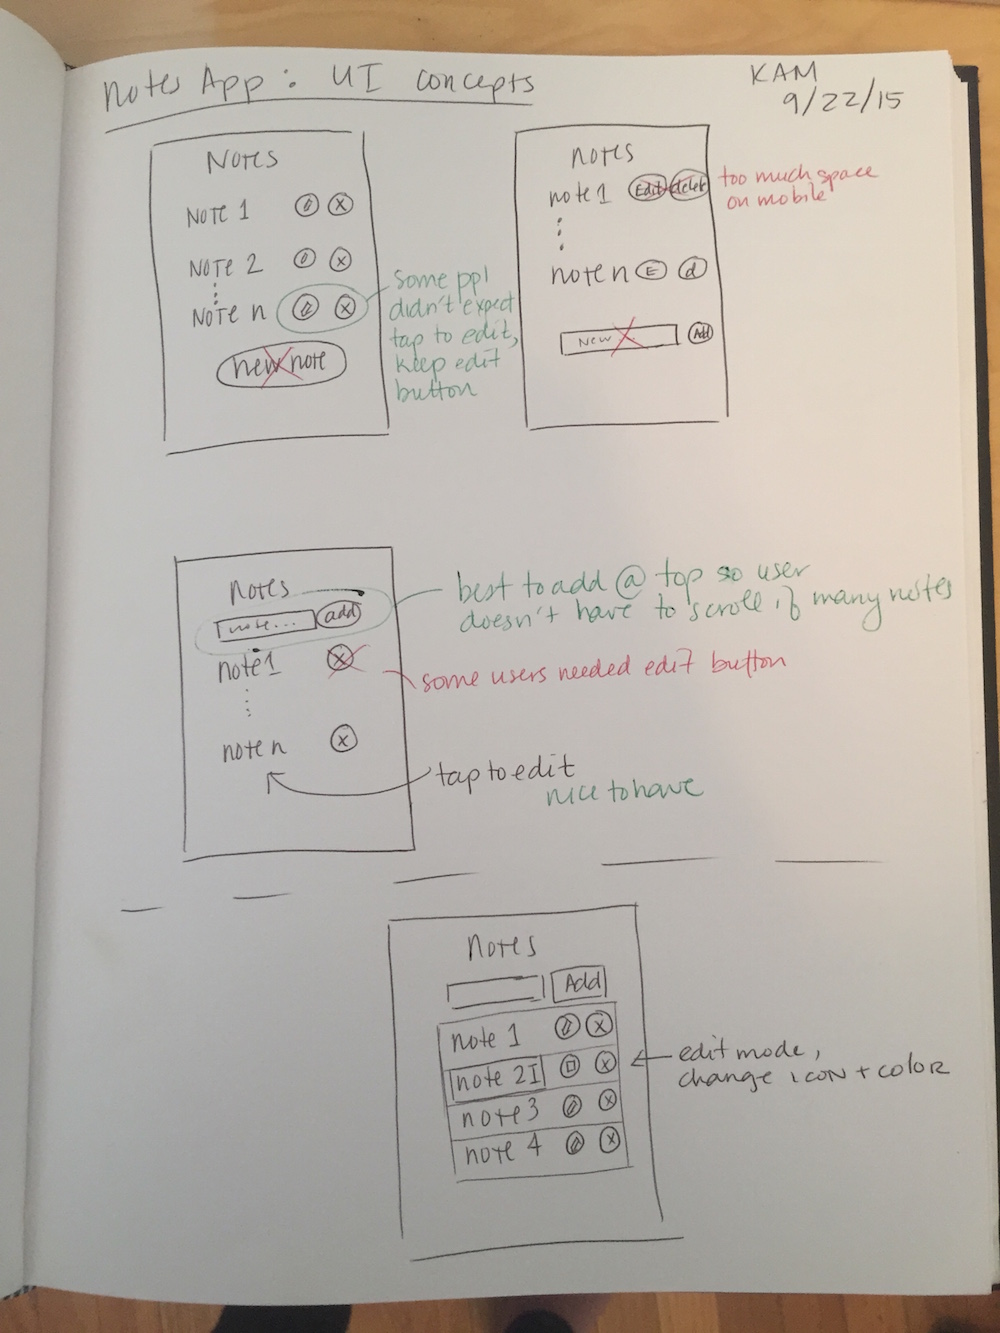 Notes App: UI concepts
KAM
9/22/15
Notes
Note 1 X
Note 2 X
Note n X
new note
Some ppl
didn't expect
tap to edit,
keep edit
button
notes
note 1 Edit delete
note n E d
New Add
too much space
on mobile
Notes
note... add
note 1 X
note n X
best to add @ top so user
doesn't have to scroll if many notes
some users needed edit button
tap to edit
nice to have
Notes
Add
note 1 X
note 2I X
note 3 X
note 4 X
edit mode,
change icon + color